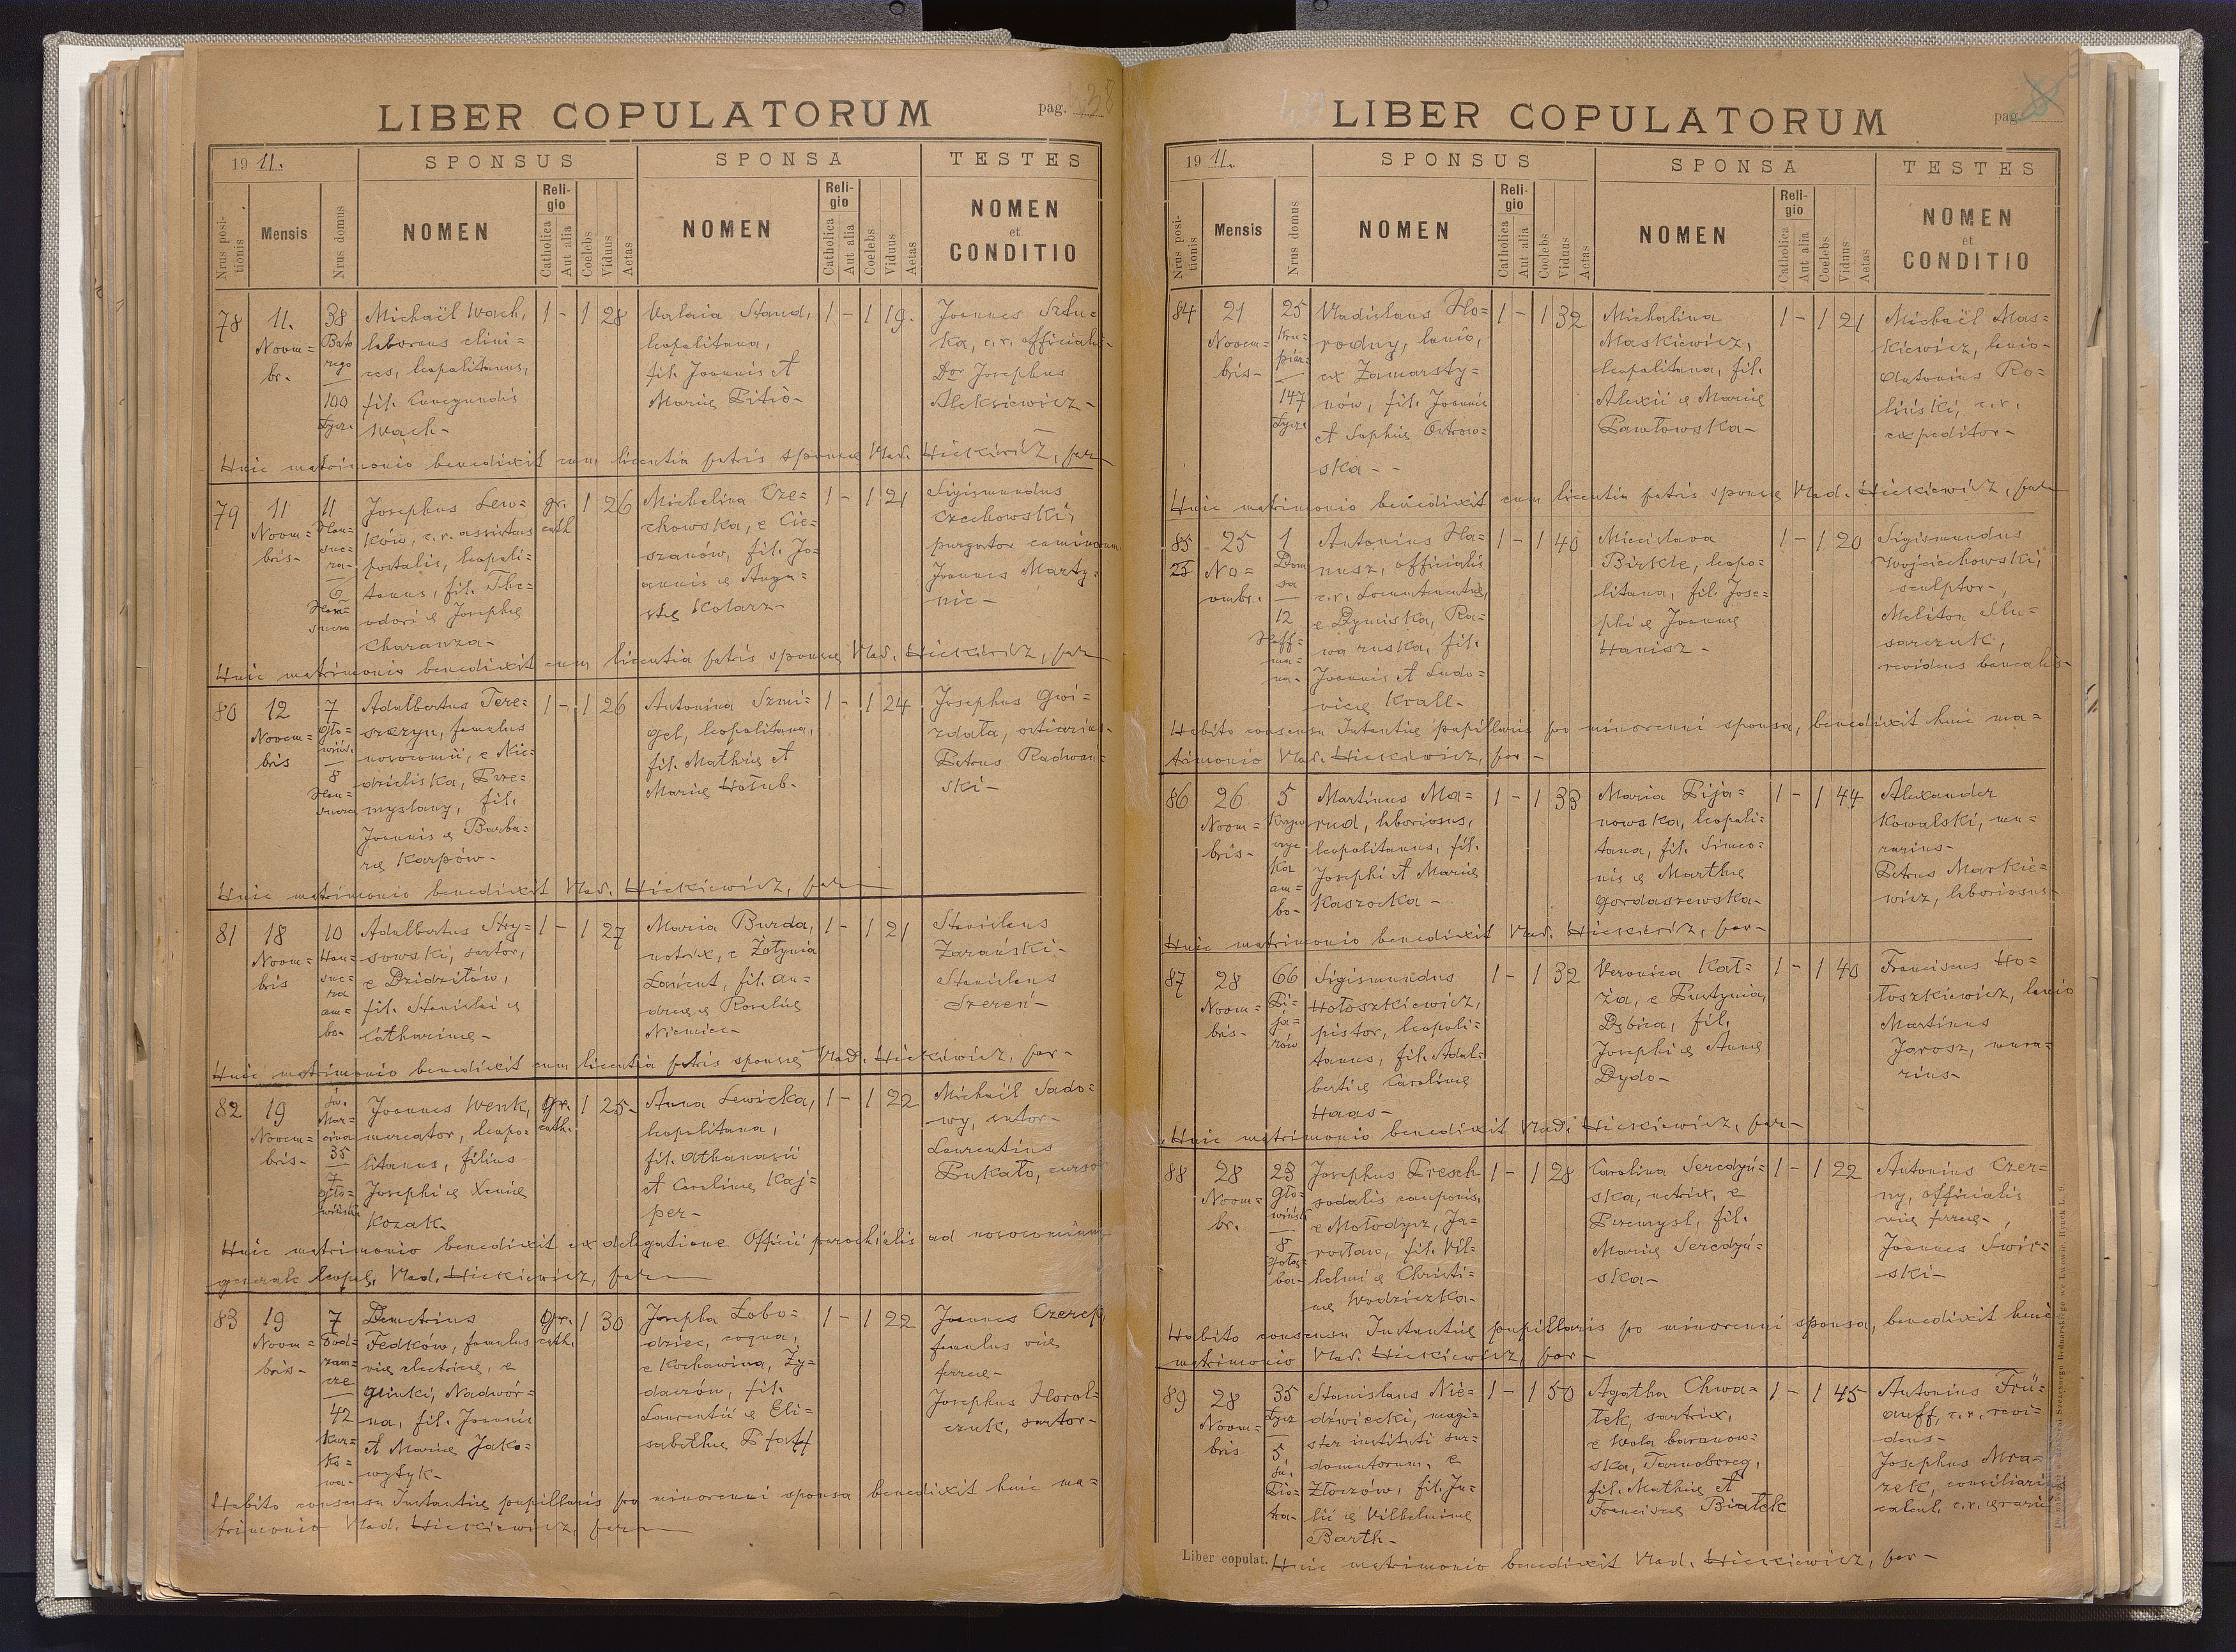 LIBER COPULATORUM
pag. 38
19 11.
SPONSUS
SPONSA
TESTES
Nrus positionis
Mensis
Nrus domus
NOMEN
Religio
Catholica
Aut alia
Coelebs
Viduus
Aetas
NOMEN
Religio
Catholica
Aut alia
Coelebs
Viduus
Aetas
NOMEN
et
CONDITIO
78
11.
Novem=
br.
38
Bato
rego
100
Łycz.
Michaël Wach,
laborans clini=
ces, leopolitanus,
fil. Cunegundis
Wach-
1 - 1 28
Valeria Staud,
leopolitana,
fil. Joannis et
Mariae Pitiò-
1 - 1 19.
Joannes Sztu=
ka, c.r. officialis-
Dor Josephus
Aleksiewicz-
Huic matrimonio benedixit cum licentia patris sponsae Vlad. Hickiewicz, par
79
11
Novem=
bris-
11
Hau=
sne=
ra-
6
Hau=
snera
Josephus Lew=
ków, c.r. assistens
postalis, leopoli=
tanus, fil. The=
odori & Josephae
Charanza-
gr.
cath
1 26
Michalina Cze=
chowska, e Cie=
szanów, fil. Jo=
annis & Augu=
stae Kolarz-
1 - 1 21
Sigismundus
Czechowski,
purgator caminorum
Joannes Marty=
nic-
Huic matrimonio benedixit cum licentia patris sponsae Vlad. Hickiewicz, par
80
12
Novem=
bris
7
Gło=
wińsk.
8
Hau=
snera
Adalbertus Tere=
szczyn, famulus
nosocomii, e Nie=
dzieliska, Prze=
myslany, fil.
Joannis & Barba=
rae Karpów-
1 - 1 26
Antonina Szmi=
gel, leopolitana,
fil. Mathiae et
Mariae Hołub-
1 - 1 24
Josephus Gwi=
zdała, ostiarius-
Petrus Radwań=
ski-
Huic matrimonio benedixit Vlad. Hickiewicz, par
81
18
Novem=
bris
10
Hau=
sne=
ra
am=
bo-
Adalbertus Stry=
sowski, sartor,
e Dzidziłów,
fil. Stanislai &
Catharinae-
1 - 1 27
Maria Burda,
nutrix, e Żołynia
Łańcut, fil. An=
dreae & Rosaliae
Niemiec-
1 - 1 21
Stanislaus
Zarański-
Stanislaus
Szereń-
Huic matrimonio benedixit cum licentia patris sponsae Vlad. Hickiewicz, par-
82
19
Novem=
bris-
św.
Mar=
cina
35
7
Gło=
wińsk.
Joannes Wenk,
mercator, leopo=
litanus, filius
Josephi & Xeniae
Kozak.
Gr.
cath.
1 25-
Anna Lewicka,
leopolitana,
fil. Athanasii
et Carolinae Kaj=
per-
1 - 1 22
Michaël Sado=
wy, sutor-
Laurentius
Pukało, cursor
Huic matrimonio benedixit ex delegatione Officii parochialis ad nosocomium
generale leopol. Vlad. Hickiewicz, par
83
19
Novem=
bris-
7
Pod=
zam=
cze
42
Kur=
ko=
wa-
Demetrius
Fedków, famulus
viae electricae, e
Glinki, Nadwór=
na, fil. Joannis
et Mariae Jako=
wytyk-
Gr.
cath.
1 30
Josepha Łobo=
dziec, coqua,
e Kochawina, Ży=
daczów, fil.
Laurentii & Eli=
sabethae Pfaff
1 - 1 22
Joannes Czerep
famulus viae
ferreae-
Josephus Horol=
czuk, sartor-
Habito consensu Instantiae pupillaris pro minorenni sponsa benedixit huic ma=
trimonio Vlad. Hickiewicz, par
LIBER COPULATORUM
pag.
19 11.
SPONSUS
SPONSA
TESTES
Nrus positionis
Mensis
Nrus domus
NOMEN
Religio
Catholica
Aut alia
Coelebs
Viduus
Aetas
NOMEN
Religio
Catholica
Aut alia
Coelebs
Viduus
Aetas
NOMEN
et
CONDITIO
84
21
Novem=
bris-
25
Kru=
piar=
147
Łycz.
Vladislaus Ho=
rodny, lanio,
ex Zamarsty=
nów, fil. Joannis
et Sophiae Ostrow=
ska--
1 - 1 32
Michalina
Maskiewicz,
leopolitana, fil.
Alexii & Mariae
Pawłowska-
1 - 1 21
Michaël Mas=
kiewicz, lanio-
Antonius Ro=
liński, c.r.
expeditor-
Huic matrimonio benedixit cum licentia patris sponsae Vlad. Hickiewicz, par
85
25
25
No=
vembr.
1
Dom
sa
12
Hoff=
ma=
na-
Antonius Ha=
nusz, officialis
c.r. Locumtenentiae,
e Dyniska, Ra=
wa ruska, fil.
Joannis et Ludo=
vicae Krall-
1 - 1 40
Miecislava
Birkle, leopo=
litana, fil. Jose=
phi & Joannae
Hanisz-
1 - 1 20
Sigismundus
Wojciechowski,
sculptor-,
Meliton Slu=
sarczuk,
revidens bancalis-
Habito consensu Instantiae pupillaris pro minorenni sponsa, benedixit huic ma=
trimonio Vlad. Hickiewicz, par-
86
26
Novem=
bris-
5
Krzyw
czyc
ka
am=
bo-
Martinus Ma=
rud, laboriosus,
leopolitanus, fil.
Josephi et Mariae
Kaszocka-
1 - 1 33
Maria Pija=
nowska, leopoli=
tana, fil. Simeo=
nis & Marthae
Gordaszewska-
1 - 1 44
Alexander
Kowalski, mu=
rarius-
Petrus Markie=
wicz, laboriosus-
Huic matrimonio benedixit Vlad. Hickiewicz, par-
87
28
Novem=
bris-
66
Pi=
ja=
rów
Sigismundus
Hołoszkiewicz,
pistor, leopoli=
tanus, fil. Adal=
berti & Carolinae
Haas-
1 - 1 32
Veronica Kał=
ża, e Pustynia,
Dębica, fil.
Josephi & Annae
Dydo-
1 - 1 40
Franciscus Ho=
łoszkiewicz, lanio
Martinus
Jarosz, mura=
rius-
Huic matrimonio benedixit Vlad. Hickiewicz, par-
88
28
Novem=
br.
23
Gło=
wińsk
8
Gołąb
ba-
Josephus Presch
sodalis cauponis,
e Mołodycz, Ja=
rosław, fil. Vil=
helmi & Christi=
nae Wodziczka-
1 - 1 28
Carolina Seredyń=
ska, nutrix, e
Przemysl, fil.
Mariae Seredyń=
ska-
1 - 1 22
Antonius Czer=
ny, officialis
viae ferreae-,
Joannes Świr=
ski-
Habito consensu Instantiae pupillaris pro minorenni sponsa, benedixit huic
matrimonio Vlad. Hickiewicz, par-
89
28
Novem=
bris
35
Łycz
5
św.
Pio=
tra-
Stanislaus Nie=
dźwiecki, magi=
ster instituti sur=
domutorum, e
Złoczów, fil. Ju=
lii & Vilhelminae
Barth-
1 - 1 50
Agatha Chwa=
łek, sartrix,
e Wola baranow=
ska, Tarnobrzeg,
fil. Mathiae et
Franciscae Białek
1 - 1 45
Antonius Frü=
auff, c.r. revi=
dens-
Josephus Mra=
zek, consiliarius
calcul. c.r. aerarii
Liber copulat.
Huic matrimonio benedixit Vlad. Hickiewicz, par-